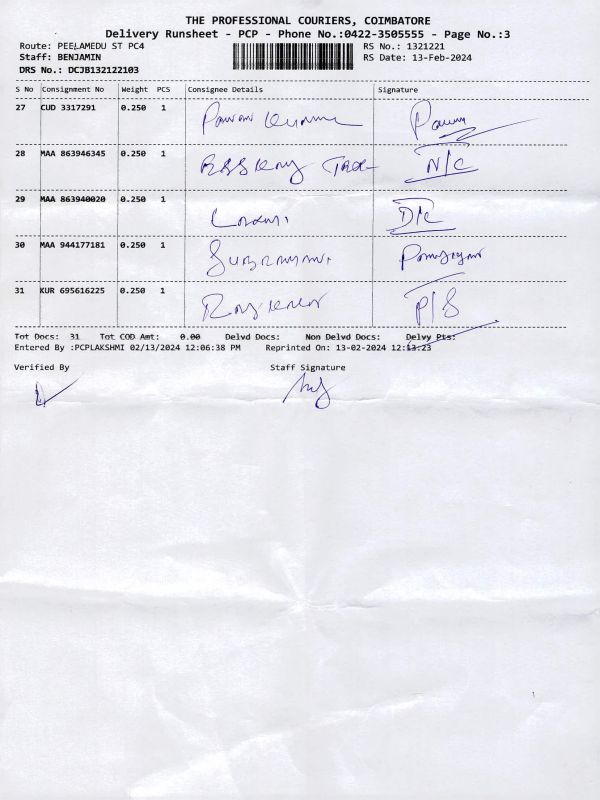 THE PROFESSIONAL COURIERS, COIMBATORE
Delivery Runsheet - PCP - Phone No.:0422-3505555 - Page No.:3
Route: PEELAMEDU ST PC4 RS No.: 1321221
Staff: BENJAMIN RS Date: 13-Feb-2024
DRS No.: DCJB132122103
S No Consignment No Weight PCS Consignee Details Signature
27 CUD 3317291 0.250 1 Pavan
28 MAA 863946345 0.250 1 N/C
29 MAA 863940020 0.250 1 D/C
30 MAA 944177181 0.250 1
31 KUR 695616225 0.250 1 P/S
Tot Docs: 31 Tot COD Amt: 0.00 Delvd Docs: Non Delvd Docs: Delvy Pts:
Entered By :PCPLAKSHMI 02/13/2024 12:06:38 PM Reprinted On: 13-02-2024 12:13:23
Verified By Staff Signature